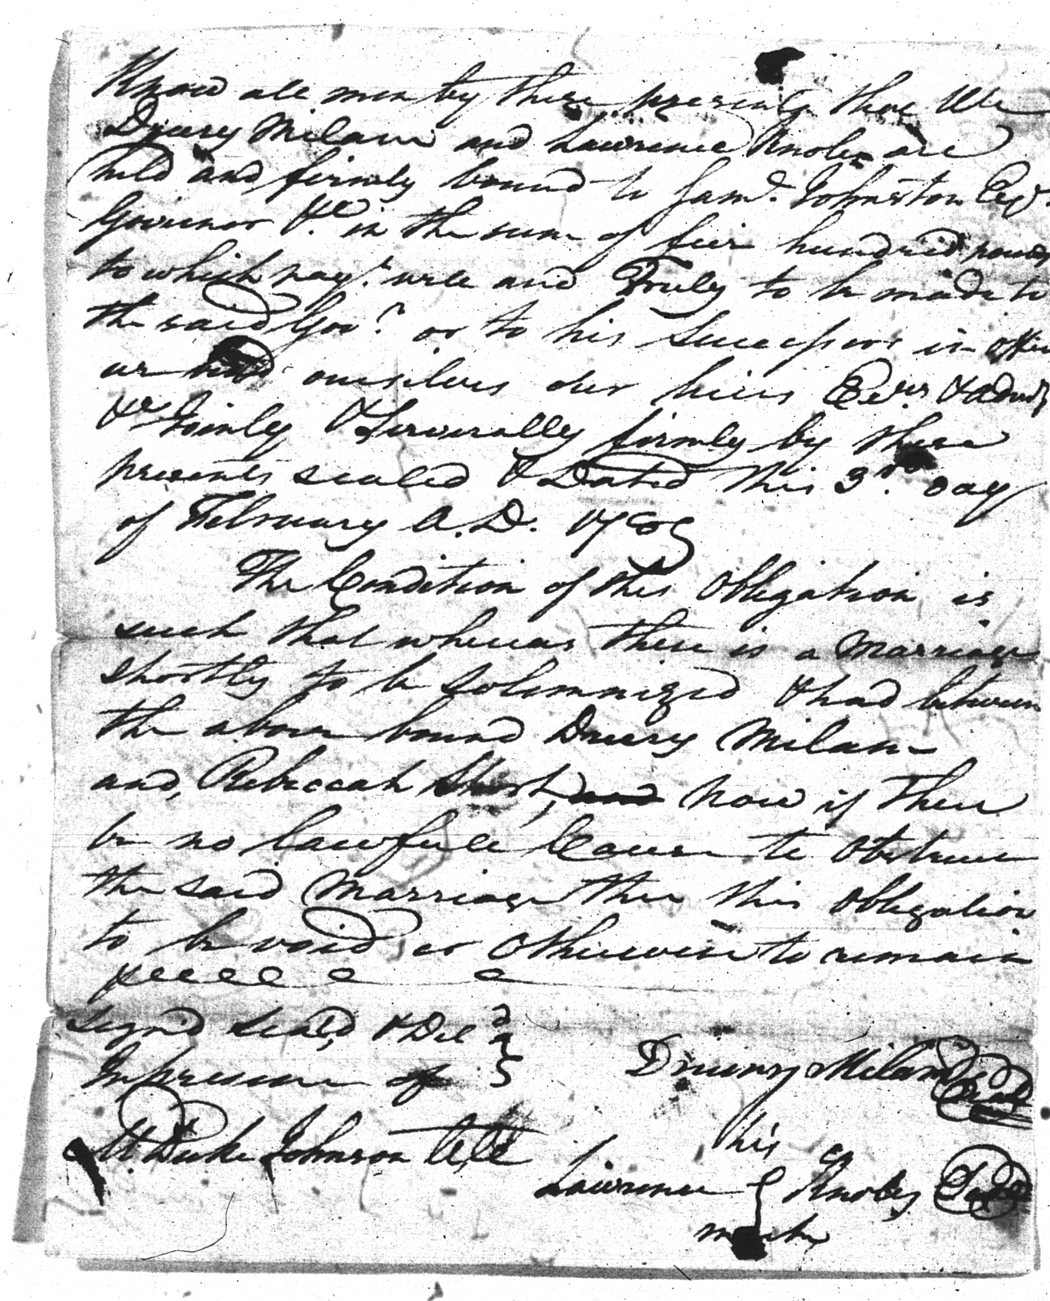 Know all men by these presents that We
Drury Milam and Lawrence Knoles are
held and firmly bound to Saml. Johnston Esqr.
Govenor &c. in the sum of five hundred pounds
to which paymt. well and Truly to be made to
the said Govr. or to his Successors in office
we bind ourselves our heirs Exrs & Admrs
&c Jointly & Severally firmly by these
presents sealed & Dated this 3rd. day
of February A.D. 1789
The Condition of this obligation is
such that whereas there is a Marriage
shortly to be Solemnized & had between
the above bound Drury Milam
and, Rebeccah Short, and Now if there
be no lawfull Cause to Obstruct
the said Marriage then this obligation
to be void or otherwise to remain
Signd Seald & Del
In presence of
Druiry Milam Seal
his
M Duke Johnson
Lawrence Knoles Seal
mark